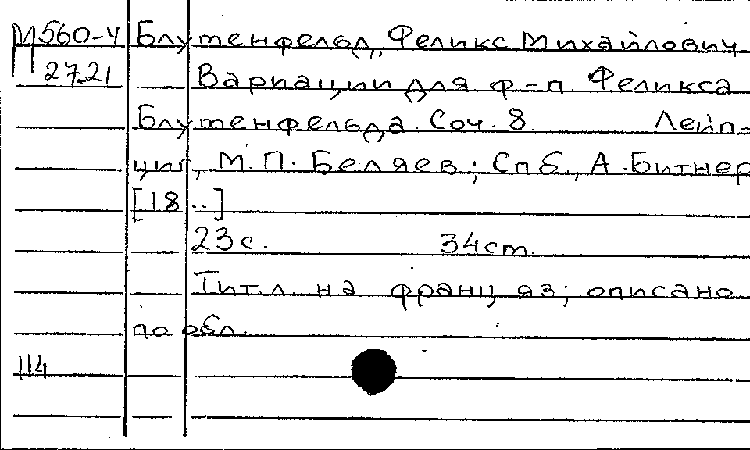 М560-4 Блуменфельд, Феликс Михайлович
П 2721 Вариации для ф-п. Феликса
Блуменфельда. Соч. 8. Лейп-
циг, М.П. Беляев; Спб., А. Битнер
[18..]
23с. 34см.
Тит.л. на франц яз; описано
по обл.
114